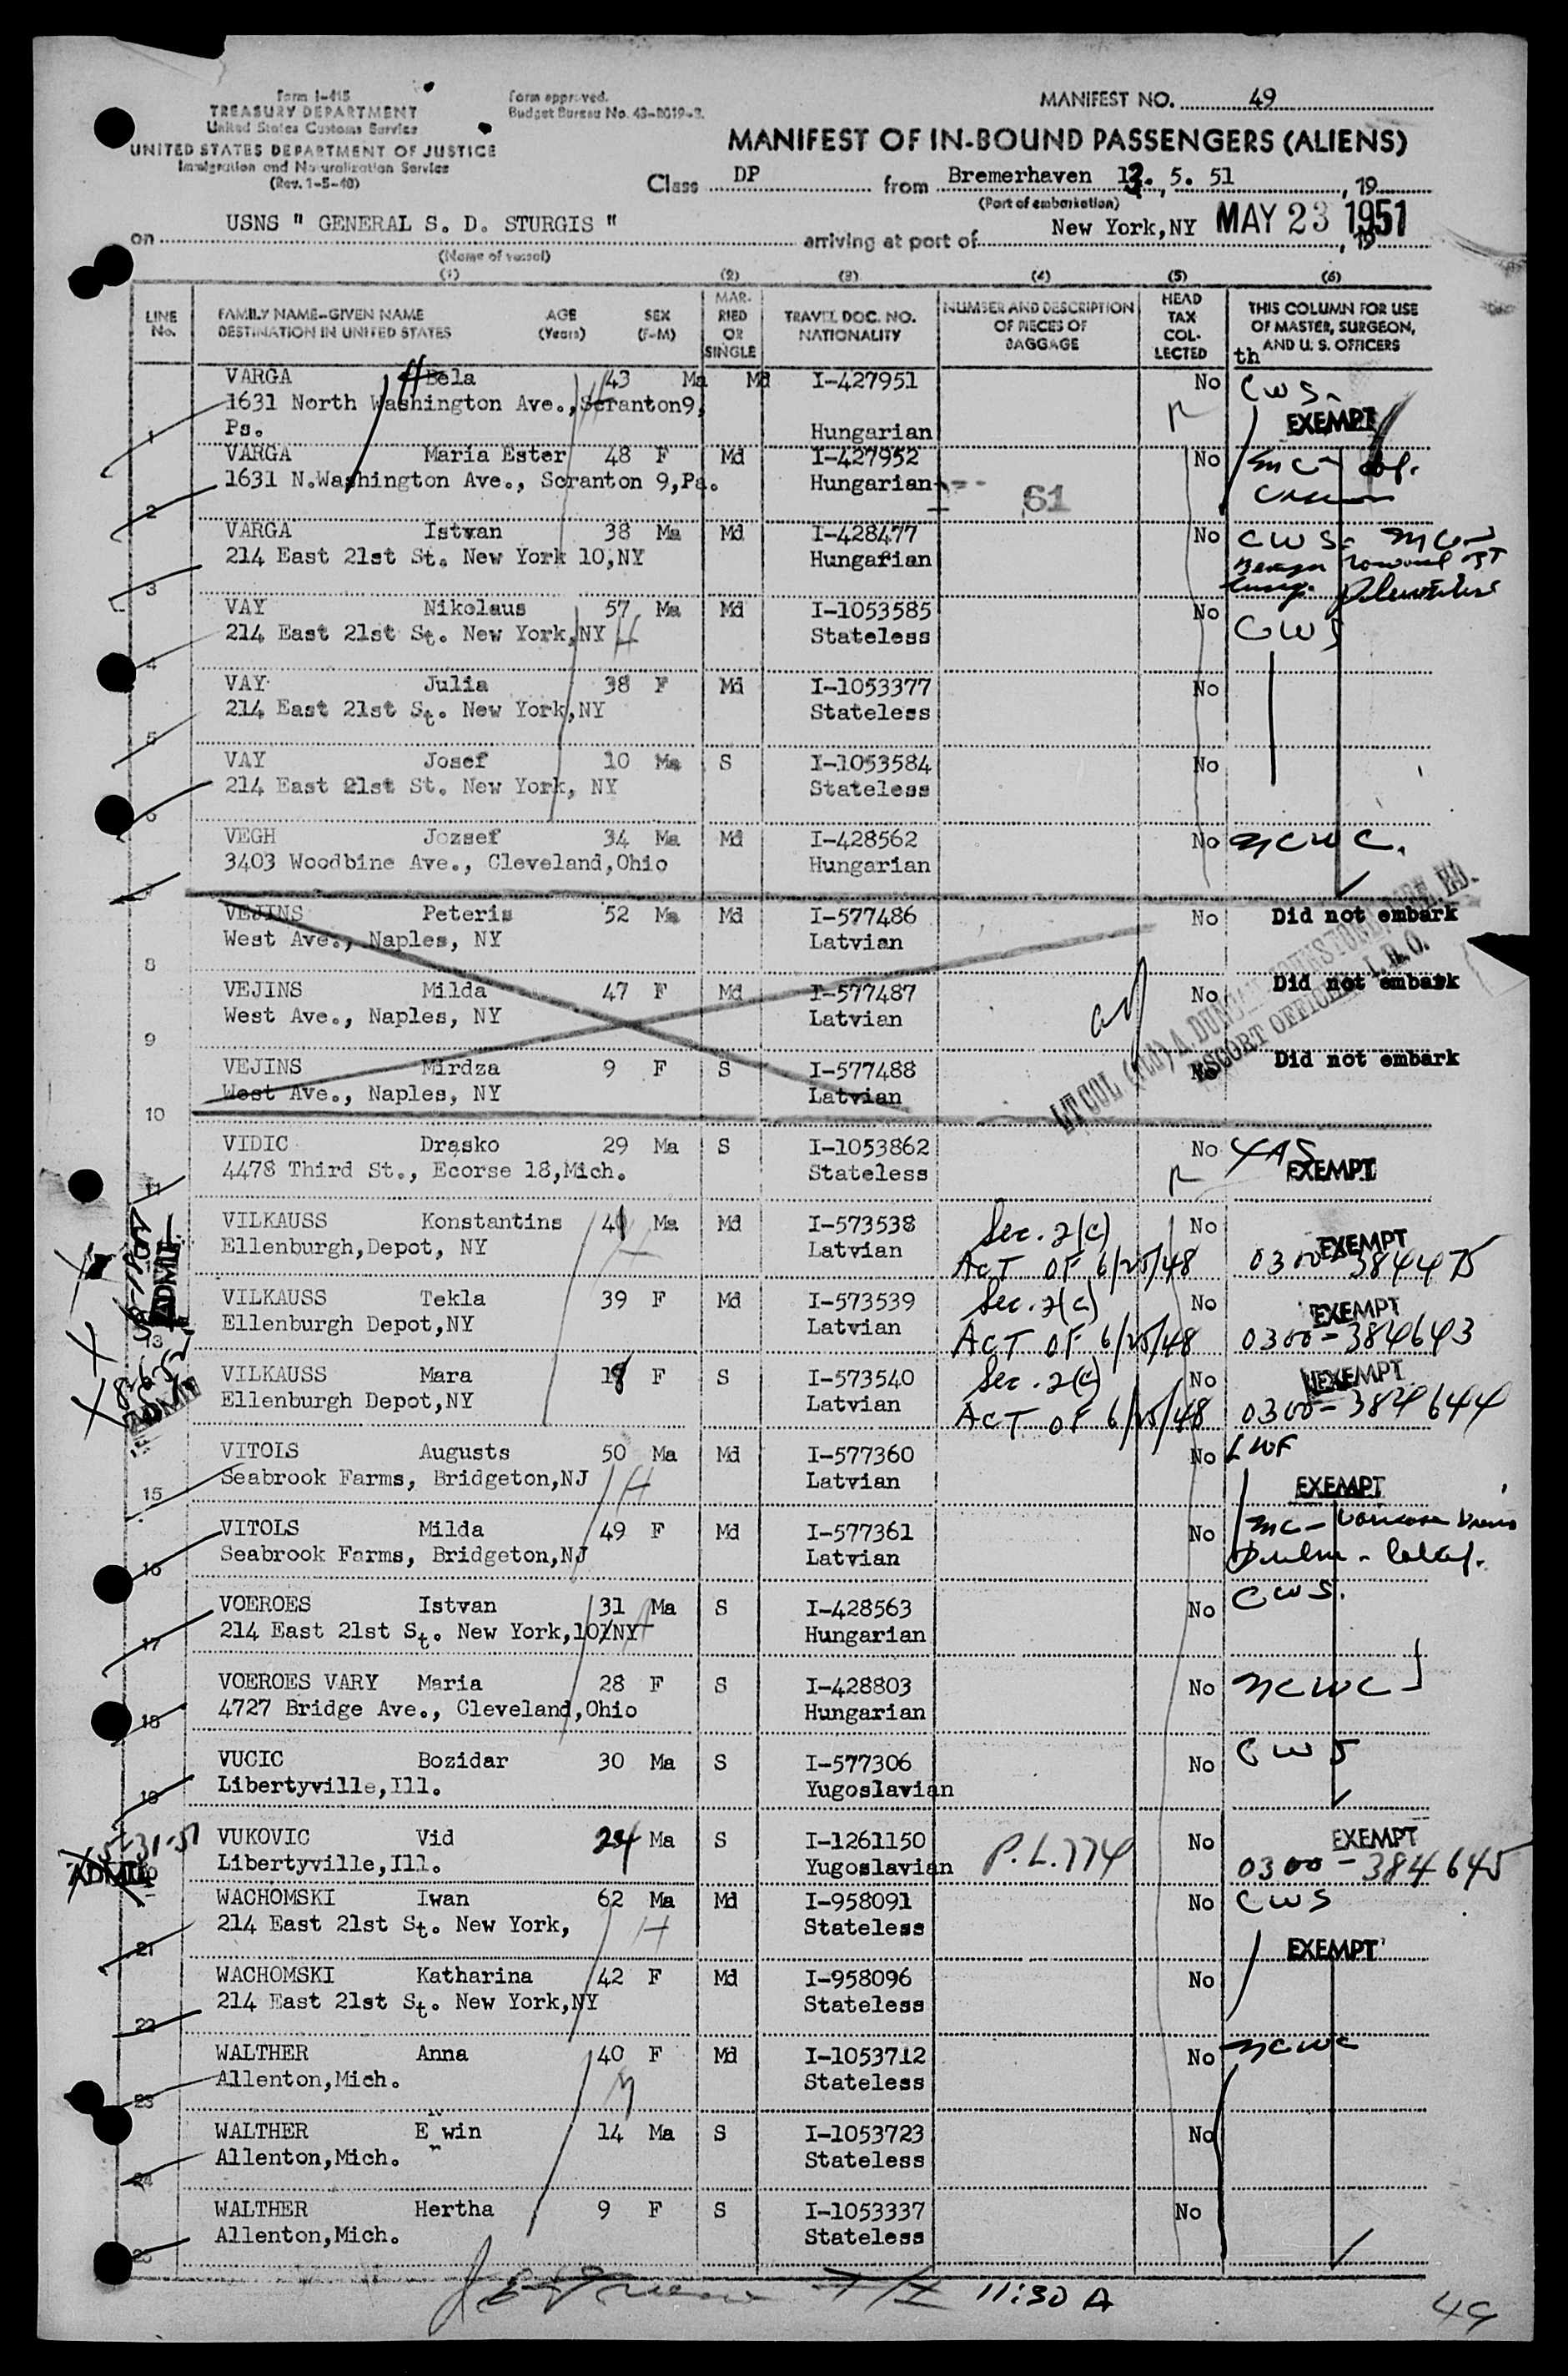 Form I-415
TREASURY DEPARTMENT
United States Customs Service
UNITED STATES DEPARTMENT OF JUSTICE
Immigration and Naturalization Service
(Rev. 1-5-40)
Form approved.
Budget Bureau No. 43-R019-2.
MANIFEST NO. 49
MANIFEST OF IN-BOUND PASSENGERS (ALIENS)
Class DP from Bremerhaven 13. 5. 51, 19
(Port of embarkation)
on USNS " GENERAL S. D. STURGIS " arriving at port of New York,NY MAY 23 1951, 19
(Name of vessel)
(1) (2) (3) (4) (5) (6)
LINE No.
FAMILY NAME-GIVEN NAME AGE SEX
DESTINATION IN UNITED STATES (Years) (F-M)
MARRIED OR SINGLE
TRAVEL DOC. NO. NATIONALITY
NUMBER AND DESCRIPTION OF PIECES OF BAGGAGE
HEAD TAX COLLECTED
THIS COLUMN FOR USE OF MASTER, SURGEON, AND U. S. OFFICERS
th
VARGA Bela 43 Ma Md I-427951 No CWS.
1631 North Washington Ave., Scranton9, EXEMPT
1 Ps. Hungarian
VARGA Maria Ester 48 F Md I-427952 No MC-
1631 N.Washington Ave., Scranton 9,Pa. Hungarian 61
2
VARGA Istvan 38 Ma Md I-428477 No CWS.
214 East 21st St. New York 10,NY Hungarian
3
VAY Nikolaus 57 Ma Md I-1053585 No CWS
214 East 21st St. New York,NY Stateless
4
VAY Julia 38 F Md I-1053377 No
214 East 21st St. New York,NY Stateless
5
VAY Josef 10 Ma S I-1053584 No
214 East 21st St. New York, NY Stateless
6
VEGH Jozsef 34 Ma Md I-428562 No NCWC.
3403 Woodbine Ave., Cleveland,Ohio Hungarian
7
VEJINS Peteris 52 Ma Md I-577486 No Did not embark
West Ave., Naples, NY Latvian
8
VEJINS Milda 47 F Md I-577487 No Did not embark
West Ave., Naples, NY Latvian
9
VEJINS Mirdza 9 F S I-577488 No Did not embark
West Ave., Naples, NY Latvian
10
ESCORT OFFICER I.R.O.
VIDIC Drasko 29 Ma S I-1053862 No
4478 Third St., Ecorse 18,Mich. Stateless EXEMPT
11
VILKAUSS Konstantins 41 Ma Md I-573538 Sec. 2(c) No EXEMPT
Ellenburgh,Depot, NY Latvian ACT OF 6/25/48 0300-384475
ADMIT
VILKAUSS Tekla 39 F Md I-573539 Sec. 2(c) No EXEMPT
Ellenburgh Depot,NY Latvian ACT OF 6/25/48 0300-384643
13
VILKAUSS Mara 18 F S I-573540 Sec. 2(c) No EXEMPT
Ellenburgh Depot,NY Latvian ACT OF 6/25/48 0300-384644
VITOLS Augusts 50 Ma Md I-577360 No LWF
Seabrook Farms, Bridgeton,NJ Latvian EXEMPT
15
VITOLS Milda 49 F Md I-577361 No MC- Varicose Veins
Seabrook Farms, Bridgeton,NJ Latvian
16
VOEROES Istvan 31 Ma S I-428563 No CWS.
214 East 21st St. New York,10,NY Hungarian
17
VOEROES VARY Maria 28 F S I-428803 No NCWC
4727 Bridge Ave., Cleveland,Ohio Hungarian
18
VUCIC Bozidar 30 Ma S I-577306 No CWS
Libertyville,Ill. Yugoslavian
19
5-31-51
VUKOVIC Vid 24 Ma S I-1261150 P.L.774 No EXEMPT
ADMIT Libertyville,Ill. Yugoslavian 0300-384645
WACHOMSKI Iwan 62 Ma Md I-958091 No CWS
214 East 21st St. New York, Stateless
21 EXEMPT
WACHOMSKI Katharina 42 F Md I-958096 No
214 East 21st St. New York,NY Stateless
22
WALTHER Anna 40 F Md I-1053712 No NCWC
Allenton,Mich. Stateless
23
WALTHER Erwin 14 Ma S I-1053723 No
Allenton,Mich. Stateless
24
WALTHER Hertha 9 F S I-1053337 No
Allenton,Mich. Stateless
25
11:30 A
49